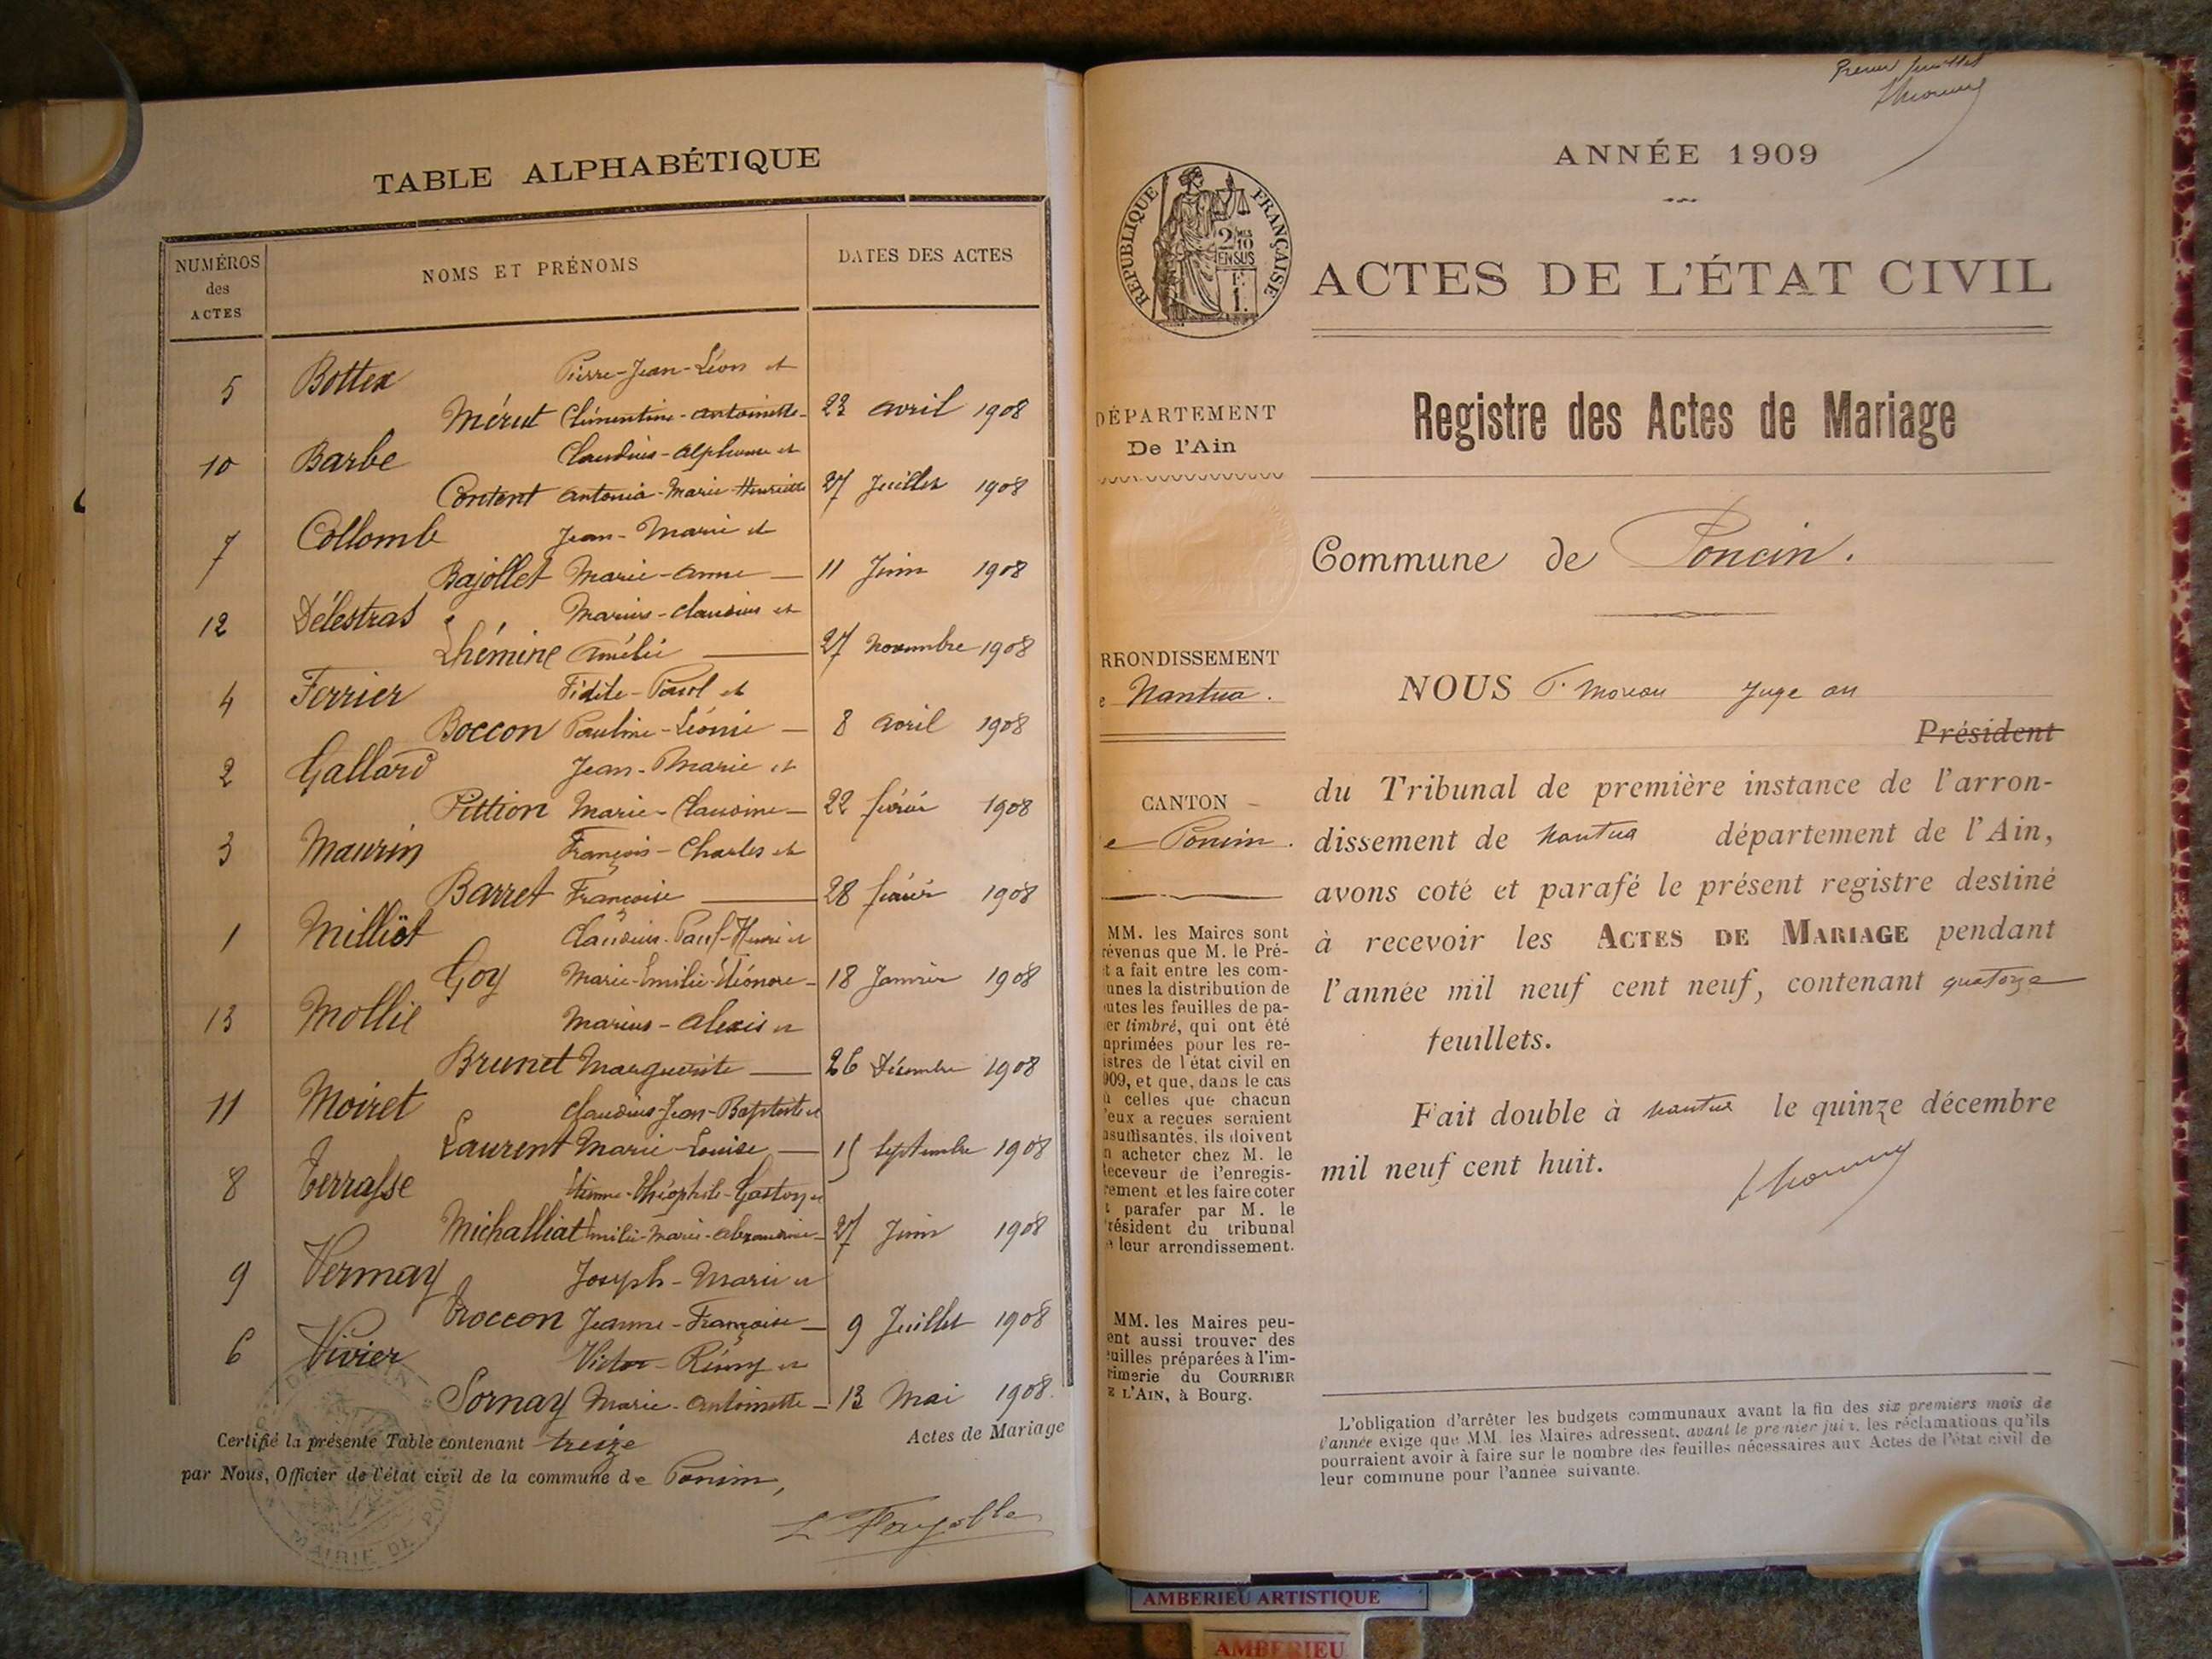 TABLE ALPHABÉTIQUE
NUMÉROS des ACTES
NOMS ET PRÉNOMS
DATES DES ACTES
5 Bottex Pierre-Jean-Léon et
Mérut Clémentine-Antoinette 23 avril 1908
10 Barbe Claudius-Alphonse et
Content Antonia-Marie-Henriette 27 Juillet 1908
7 Collomb Jean-Marie et
Bajollet Marie-Anne 11 Juin 1908
12 Délestras Marius-Claudius et
Lhémine Amélie 27 Novembre 1908
4 Ferrier Fidèle-Paul et
Boccon Pauline-Léonie 8 avril 1908
2 Gallard Jean-Marie et
Pittion Marie-Claudine 22 février 1908
3 Maurin François-Charles et
Barret Françoise 28 février 1908
1 Milliot Claudius-Paul-Henri et
Goy Marie-Emilie-Eléonore 18 Janvier 1908
13 Mollie Marius-Alexis et
Brunet Marguerite 26 Décembre 1908
11 Moiret Claudius-Jean-Baptiste et
Laurent Marie-Louise 15 Septembre 1908
8 Terrasse Etienne-Théophile-Gaston et
Michalliat Emilie-Marie-Alexandrine 27 Juin 1908
9 Vermay Joseph-Marie et
Troccon Jeanne-Françoise 9 Juillet 1908
6 Vivier Victor-Rémy et
Sornay Marie-Antoinette 13 Mai 1908
Certifié la présente Table contenant treize Actes de Mariage
par Nous, Officier de l'état civil de la commune de Poncin,
L Fayolle
MAIRIE DE PON
Premier feuillet
ANNÉE 1909
RÉPUBLIQUE FRANÇAISE
2/10 EN SUS
F. 1.
ACTES DE L'ÉTAT CIVIL
DÉPARTEMENT
De l'Ain
Registre des Actes de Mariage
Commune de Poncin.
RRONDISSEMENT
e Nantua.
CANTON
e Poncin.
MM. les Maires sont
révenus que M. le Pré-
t a fait entre les com-
unes la distribution de
utes les feuilles de pa-
er timbré, qui ont été
mprimées pour les re-
istres de l'état civil en
909, et que, dans le cas
ù celles que chacun
'eux a reçues seraient
nsuffisantes, ils doivent
n acheter chez M. le
eceveur de l'enregis-
rement et les faire coter
t parafer par M. le
résident du tribunal
e leur arrondissement.
MM. les Maires peu-
ent aussi trouver des
uilles préparées à l'im-
rimerie du COURRIER
E L'AIN, à Bourg.
NOUS P. Moreau Juge au
Président
du Tribunal de première instance de l'arron-
dissement de Nantua département de l'Ain,
avons coté et parafé le présent registre destiné
à recevoir les ACTES DE MARIAGE pendant
l'année mil neuf cent neuf, contenant quatorze
feuillets.
Fait double à Nantua le quinze décembre
mil neuf cent huit.
L'obligation d'arrêter les budgets communaux avant la fin des six premiers mois de
l'année exige que MM. les Maires adressent, avant le premier juin, les réclamations qu'ils
pourraient avoir à faire sur le nombre des feuilles nécessaires aux Actes de l'état civil de
leur commune pour l'année suivante.
AMBERIEU ARTISTIQUE
AMBERIEU